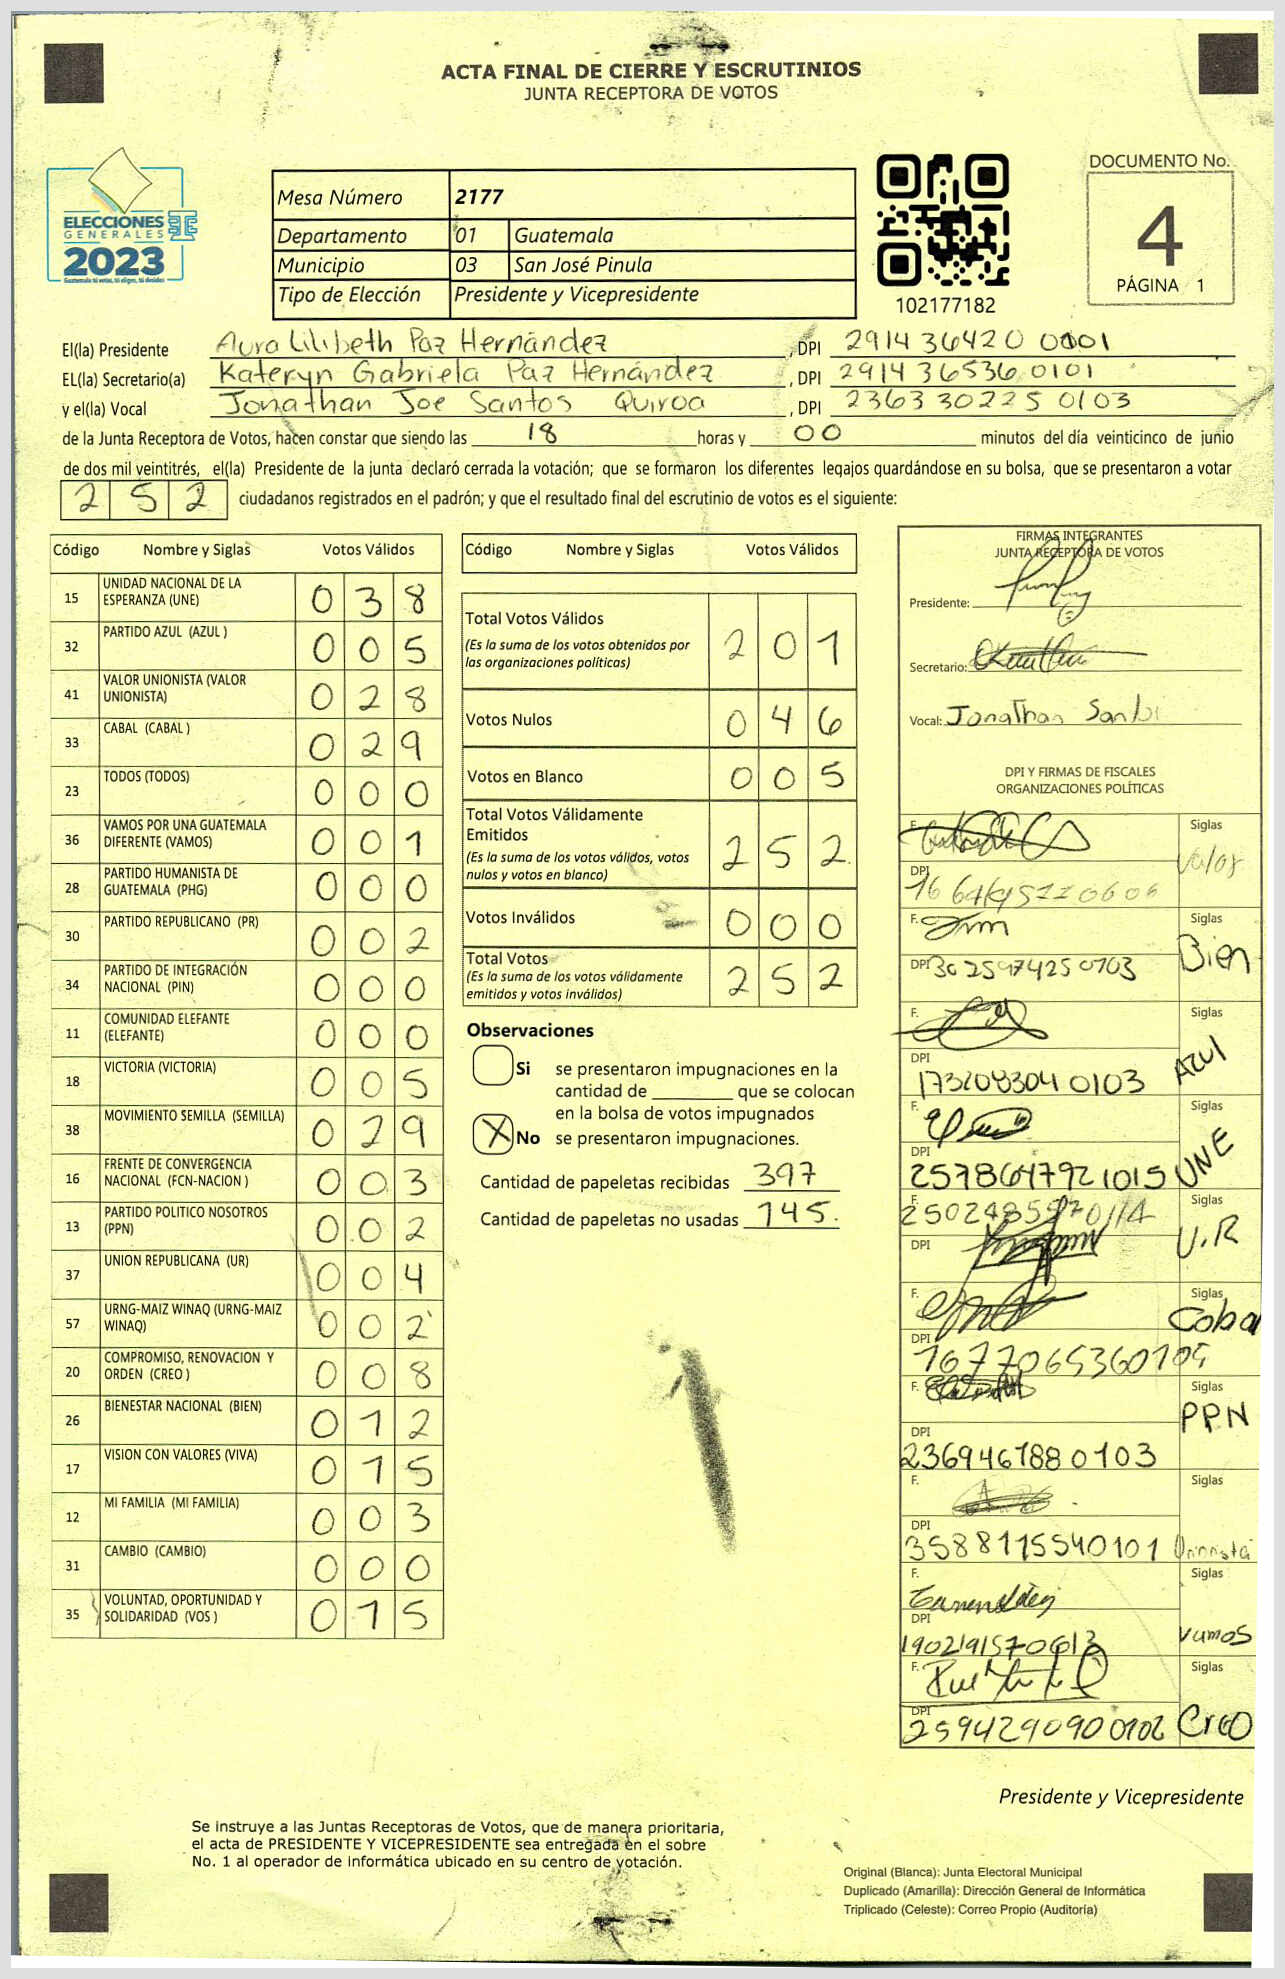 ACTA FINAL DE CIERRE Y ESCRUTINIOS
JUNTA RECEPTORA DE VOTOS
ELECCIONES
GENERALES
2023
Guatemala tú votas, tú eliges, tú decides
Mesa Número 2177
Departamento 01 Guatemala
Municipio 03 San José Pinula
Tipo de Elección Presidente y Vicepresidente
102177182
DOCUMENTO No.
4
PÁGINA 1
El(la) Presidente Aura Lilibeth Paz Hernández, DPI 291436420 0101
EL(la) Secretario(a) Kateryn Gabriela Paz Hernández, DPI 291436536 0101
y el(la) Vocal Jonathan Joe Santos Quiroa, DPI 236330225 0103
de la Junta Receptora de Votos, hacen constar que siendo las 18 horas y 00 minutos del día veinticinco de junio
de dos mil veintitrés, el(la) Presidente de la junta declaró cerrada la votación; que se formaron los diferentes legajos quardándose en su bolsa, que se presentaron a votar
252 ciudadanos registrados en el padrón; y que el resultado final del escrutinio de votos es el siguiente:
Código Nombre y Siglas Votos Válidos
15 UNIDAD NACIONAL DE LA ESPERANZA (UNE) 038
32 PARTIDO AZUL (AZUL ) 005
41 VALOR UNIONISTA (VALOR UNIONISTA) 028
33 CABAL (CABAL ) 029
23 TODOS (TODOS) 000
36 VAMOS POR UNA GUATEMALA DIFERENTE (VAMOS) 001
28 PARTIDO HUMANISTA DE GUATEMALA (PHG) 000
30 PARTIDO REPUBLICANO (PR) 002
34 PARTIDO DE INTEGRACIÓN NACIONAL (PIN) 000
11 COMUNIDAD ELEFANTE (ELEFANTE) 000
18 VICTORIA (VICTORIA) 005
38 MOVIMIENTO SEMILLA (SEMILLA) 029
16 FRENTE DE CONVERGENCIA NACIONAL (FCN-NACION ) 003
13 PARTIDO POLITICO NOSOTROS (PPN) 002
37 UNION REPUBLICANA (UR) 004
57 URNG-MAIZ WINAQ (URNG-MAIZ WINAQ) 002
20 COMPROMISO, RENOVACION Y ORDEN (CREO ) 008
26 BIENESTAR NACIONAL (BIEN) 012
17 VISION CON VALORES (VIVA) 015
12 MI FAMILIA (MI FAMILIA) 003
31 CAMBIO (CAMBIO) 000
35 VOLUNTAD, OPORTUNIDAD Y SOLIDARIDAD (VOS ) 015
Código Nombre y Siglas Votos Válidos
Total Votos Válidos 201
(Es la suma de los votos obtenidos por
las organizaciones políticas)
Votos Nulos 046
Votos en Blanco 005
Total Votos Válidamente
Emitidos 252
(Es la suma de los votos válidos, votos
nulos y votos en blanco)
Votos Inválidos 000
Total Votos 252
(Es la suma de los votos válidamente
emitidos y votos inválidos)
Observaciones
Si se presentaron impugnaciones en la
cantidad de ________ que se colocan
en la bolsa de votos impugnados
X No se presentaron impugnaciones.
Cantidad de papeletas recibidas 397
Cantidad de papeletas no usadas 145.
FIRMAS INTEGRANTES
JUNTA RECEPTORA DE VOTOS
Presidente:
Secretario:
Vocal: Jonathan Santos
DPI Y FIRMAS DE FISCALES
ORGANIZACIONES POLÍTICAS
F. Siglas Valor
DPI
F. Siglas Bien
DPI 302597425 0103
F. Siglas AZUl
DPI 173208304 0103
F. Siglas UNE
DPI 257864792 1015
F. Siglas U.R
DPI
F. Siglas Cabal
DPI
F. Siglas PPN
DPI 236946788 0103
F. Siglas
DPI 358811554 0101
F. Siglas vamos
DPI
F. Siglas Creo
DPI 259429090 0102
Presidente y Vicepresidente
Se instruye a las Juntas Receptoras de Votos, que de manera prioritaria,
el acta de PRESIDENTE Y VICEPRESIDENTE sea entregada en el sobre
No. 1 al operador de informática ubicado en su centro de votación.
Original (Blanca): Junta Electoral Municipal
Duplicado (Amarilla): Dirección General de Informática
Triplicado (Celeste): Correo Propio (Auditoría)